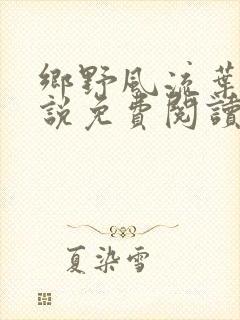 鄉野風流葉
說免費閱讀
夏染雪